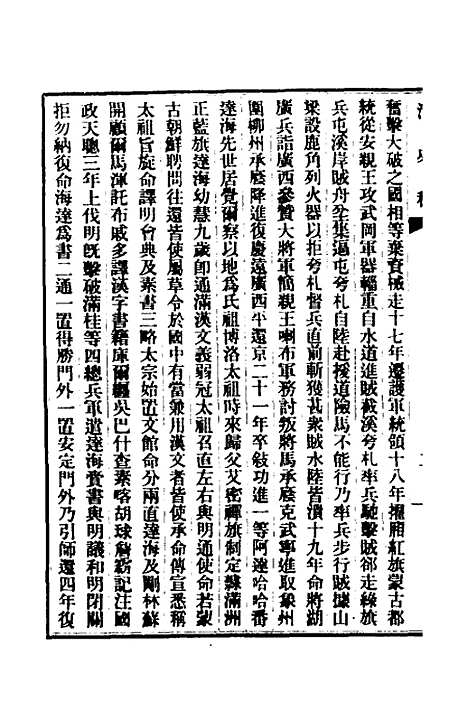 清史稿
奮擊大破之國相等棄資械走十七年遷護軍統領十八年擢廂紅旗蒙古都
統從安親王攻武岡軍器輜重自水道進賊截溪夸札率兵馳擊賊卻走綠旗
兵屯溪岸賊舟坌集逼屯夸札自陸赴援道險馬不能行乃率兵步行賊據山
梁設鹿角列火器以拒夸札督兵直前斬獲甚衆賊水陸皆潰十九年命將湖
廣兵詣廣西參贊大將軍簡親王喇布軍務討叛將馬承廕克武寧進取象州
圍柳州承廕降進復慶遠廣西平還京二十一年卒敍功進一等阿達哈哈番
達海先世居覺爾察以地爲氏祖博洛太祖時來歸父艾密禪旗制定隸滿洲
正藍旗達海幼慧九歲卽通滿漢文義弱冠太祖召直左右與明通使命若蒙
古朝鮮聘問往還皆使屬草令於國中有當兼用漢文者皆使承命傳宣悉稱
太祖旨旋命譯明會典及素書三略太宗始置文館命分兩直達海及剛林蘇
開顧爾馬渾託布戚多譯漢字書籍庫爾纏吳巴什查素喀胡球詹霸記注國
政天聰三年上伐明旣擊破滿桂等四總兵軍遣達海賫書與明議和明閉關
拒勿納復命海達爲書二通一置得勝門外一置安定門外乃引師還四年復